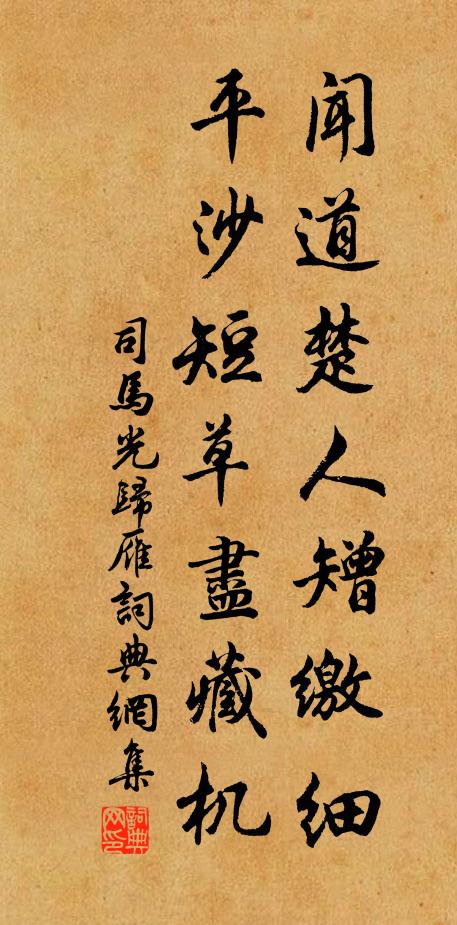 聞道楚人矰繳細
平沙短草盡藏机
司馬光歸雁詞典網集
詞典网印